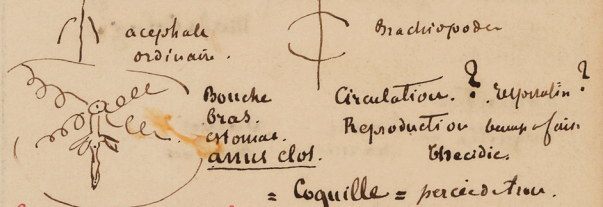 acephale
ordinaire.
Brachiopode
Bouche
bras.
estomac.
anus clos.
Circulation. ? respiration ?
Reproduction
Thecidie.
= Coquille =